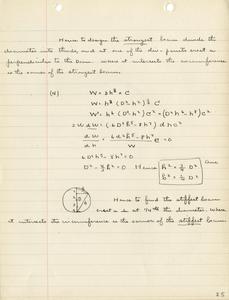 Hence to design the strongest beam divide the
diameter into thirds, and at one of the div. points erect a
perpendicular to the Diam. where it intersects the circumference
is the corner of the strongest beam.
(4) W = bh³ C
W = h³ (D²-h²)^½ C
W² = h⁶ (D²-h²) C² = (D²h⁶-h⁸) C²
2W dW = (6D²h⁵-8h⁷) dh C²
dW/dh = (6D²h⁵-8h⁷)/W C = 0
6D²h⁵-8h⁷ = 0
D² - 4/3 h² = 0 Hence h² = 3/4 D²
b² = 1/4 D²
Hence to find the stiffest beam
erect a ⊥ at ¼th the diameter. Where
it intersects the circumference is the corner of the stiffest beam
25